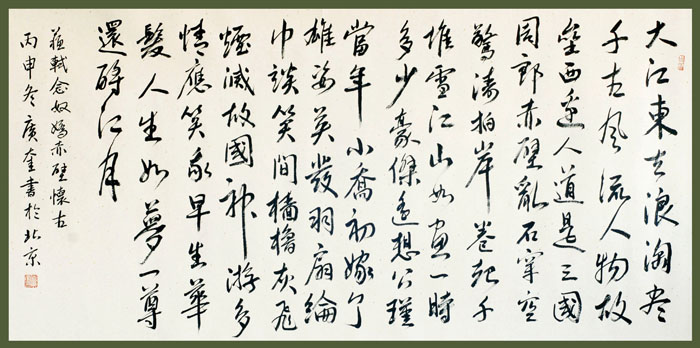 大江東去浪淘盡
千古風流人物故
壘西邊人道是三國
周郎赤壁亂石穿空
驚濤拍岸卷起千
堆雪江山如畫一時
多少豪傑遙想公瑾
當年小喬初嫁了
雄姿英發羽扇綸
巾談笑間檣櫓灰飛
煙滅故國神游多
情應笑我早生華
髮人生如夢一尊
還酹江月
蘇軾念奴嬌赤壁懷古
丙申冬廣奎書於北京